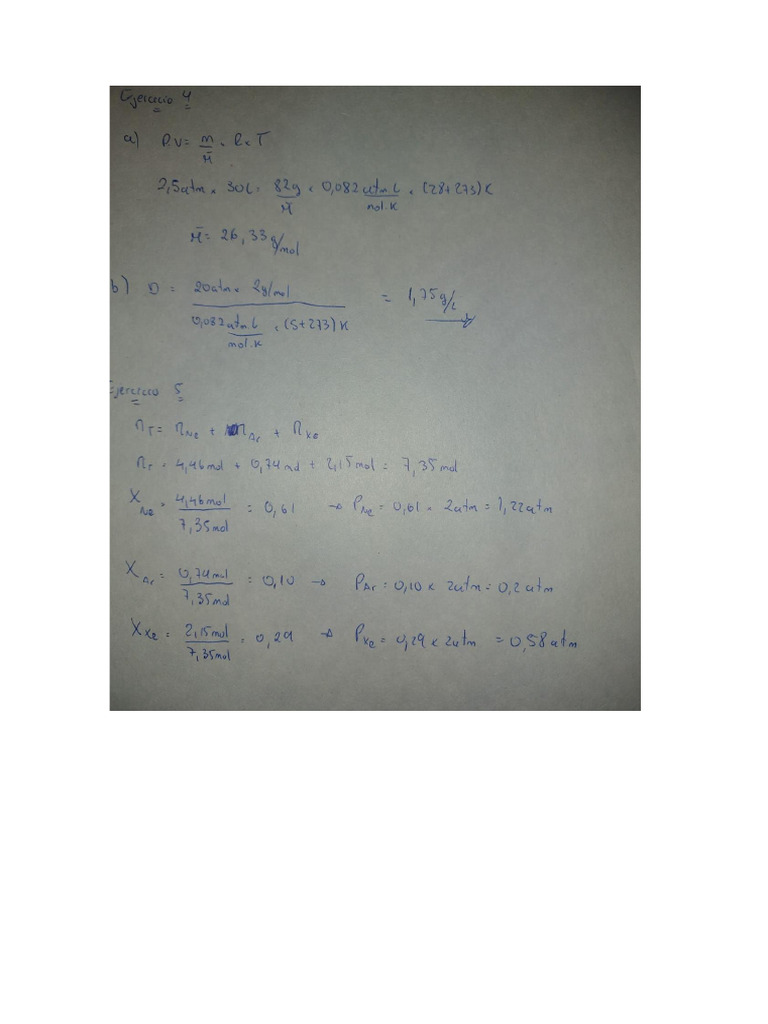 Ejercicio 4
a) P.V = m/M̄ × R × T
2,5atm × 30L = 82g/M̄ × 0,082 atm L/mol.K × (28+273)K
M̄ = 26,33 g/mol
b) D = 20atm × 2g/mol / 0,082 atm L/mol.K × (5+273)K = 1,75 g/L
Ejercicio 5
nT = nNe + nAr + nXe
nT = 4,46mol + 0,74mol + 2,15mol = 7,35mol
XNe = 4,46mol/7,35mol = 0,61 → PNe = 0,61 × 2atm = 1,22atm
XAr = 0,74mol/7,35mol = 0,10 → PAr = 0,10 × 2atm = 0,2 atm
XXe = 2,15mol/7,35mol = 0,29 → PXe = 0,29 × 2atm = 0,58atm